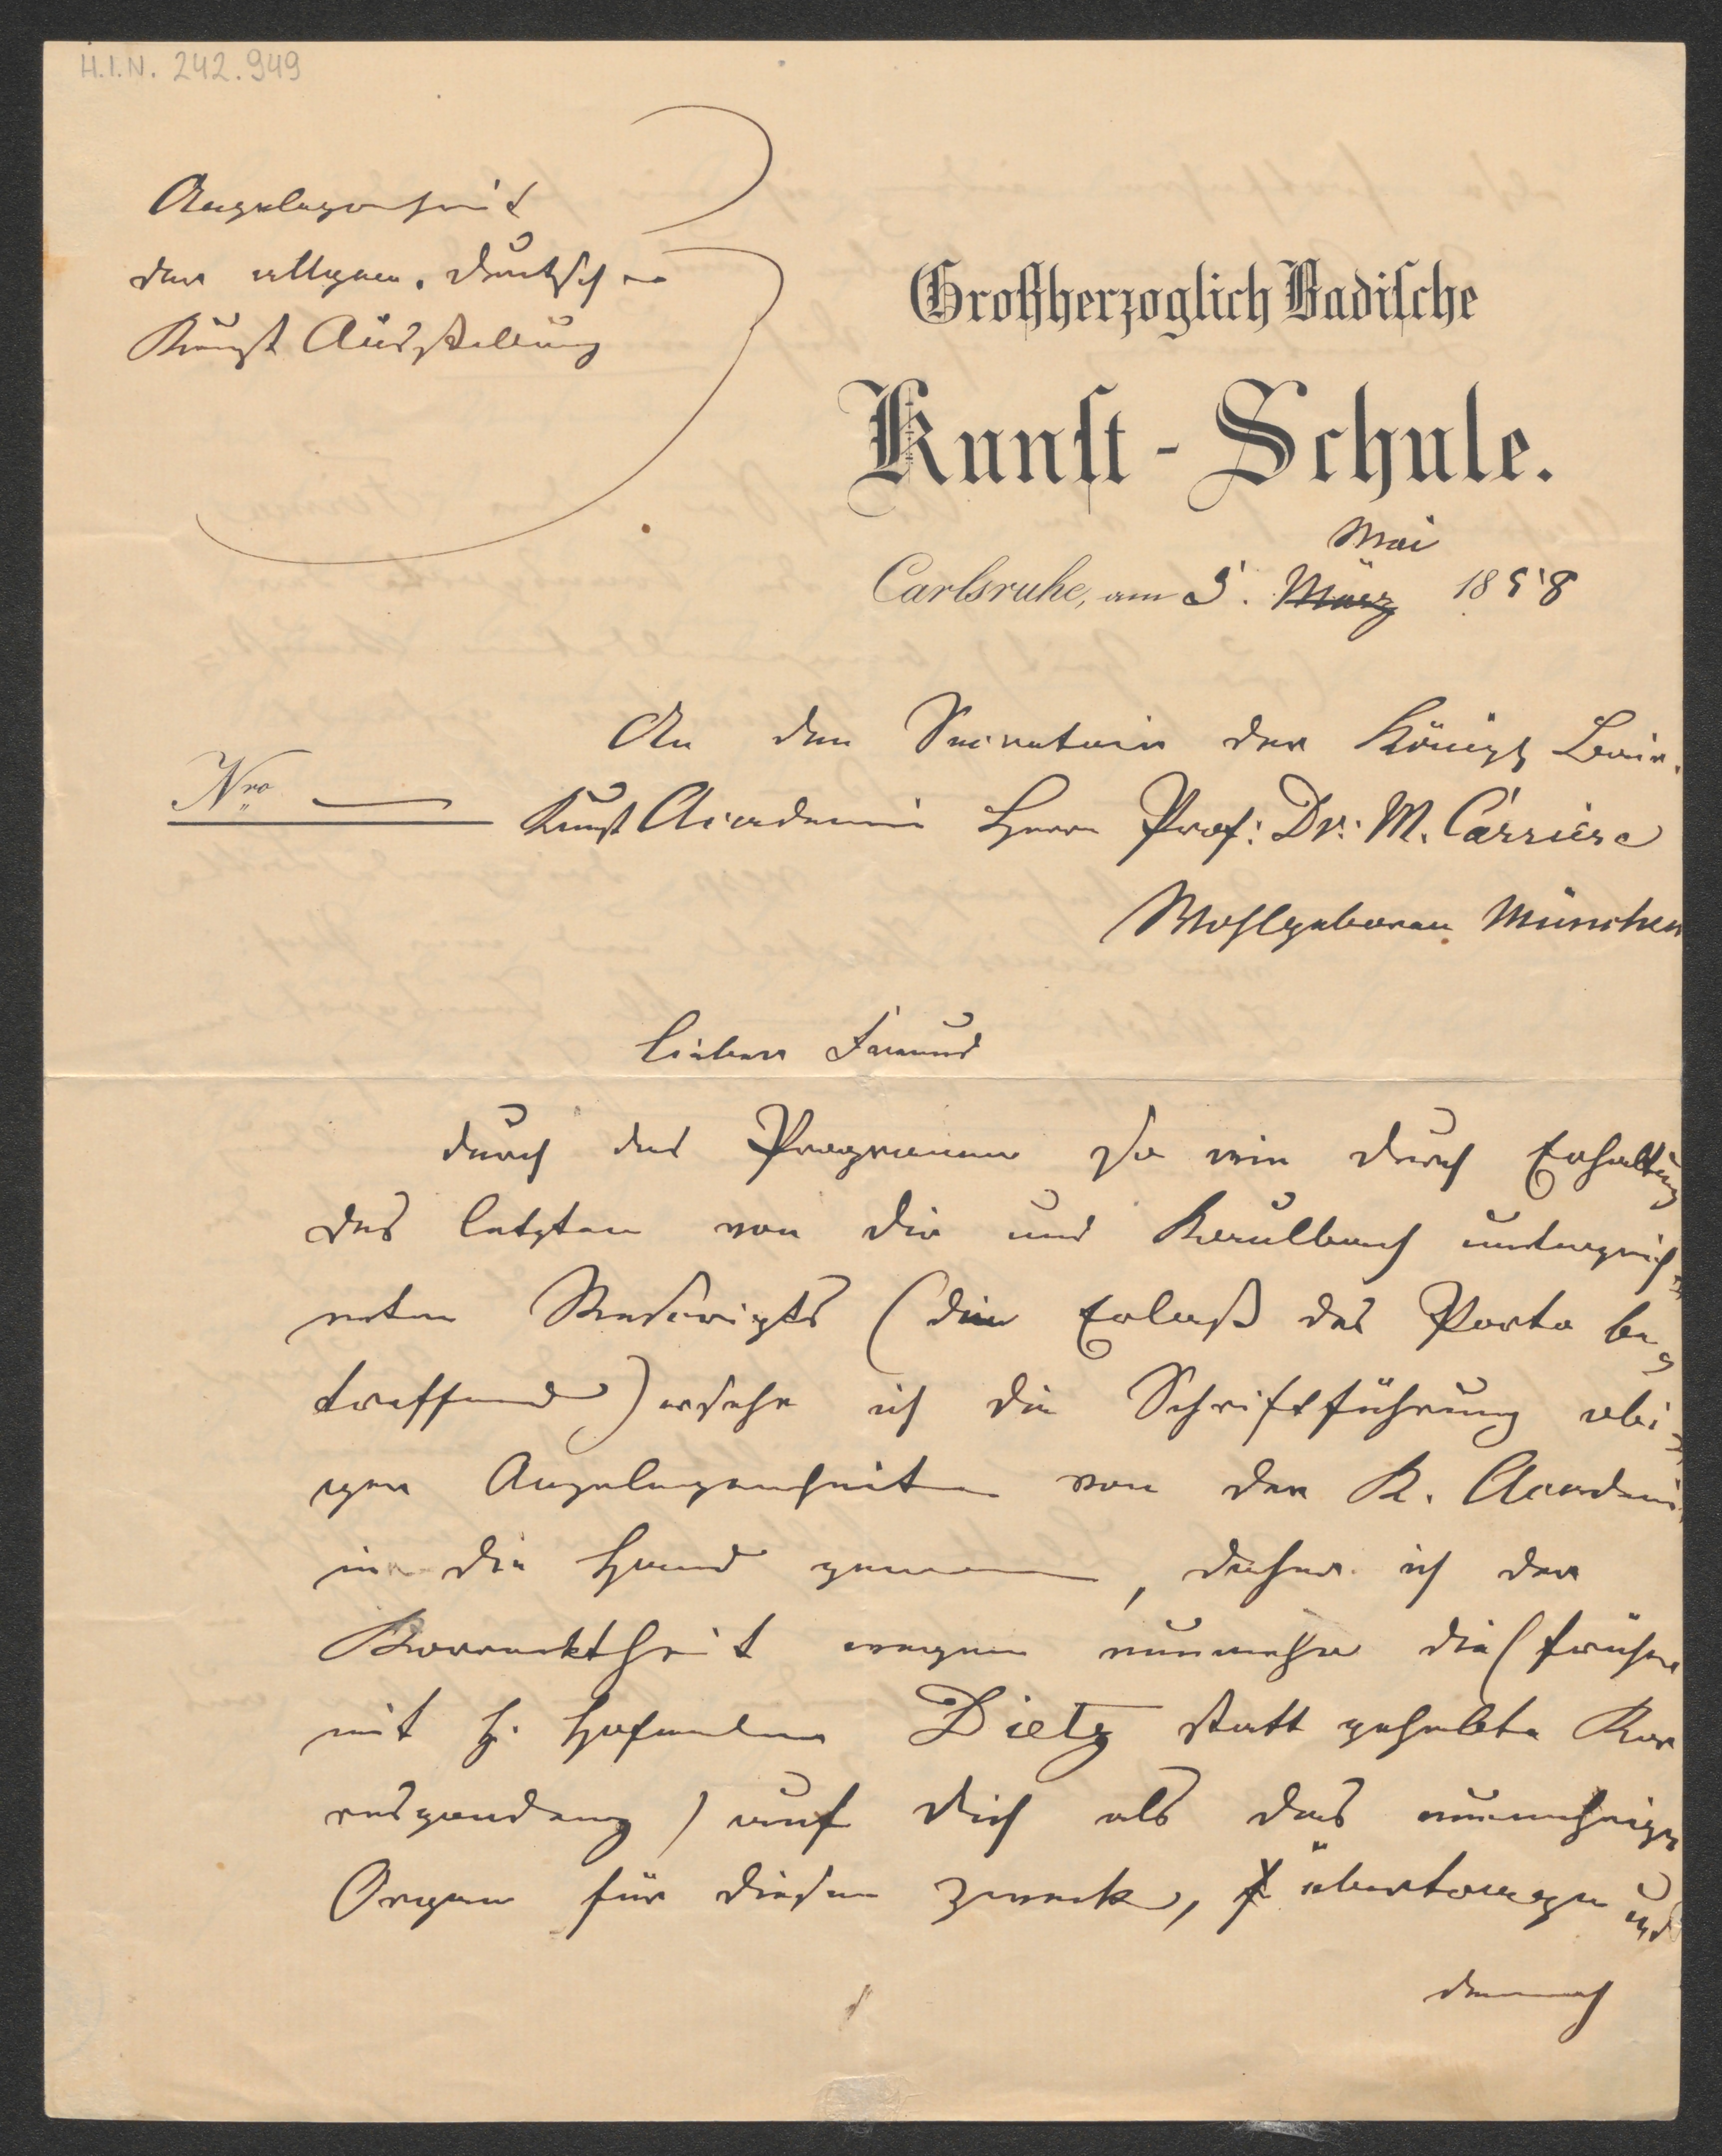 H.I.N. 242.949
Angelegenheit
der allgem. deutschen
Kunst Ausstellung
Großherzoglich Badische
Kunst-Schule.
Mai
Carlsruhe, am 5. März 1858
An den Secretair der Königl Bair.
Nro —
Kunst Academie Herrn Prof: Dr: M. Carriére
Wohlgeboren München
Lieber Freund
durch das Programm so wie durch Erhaltung
des letzten von dir und Kaulbach unterzeich
neten Rescripts (den Erlaß des Porto be
treffend) ersehe ich die Schriftführung obi
ger Angelegenheiten von der K. Academie
in die Hand genommen, daher ich der
Korrecktheit wegen nunmehr die (früher
mit H. Hofmaler Dietz statt gehabte Kor
respondenz) auf dich als das nunmehrige
Organ für diesen Zweck, übertrage und
demnach